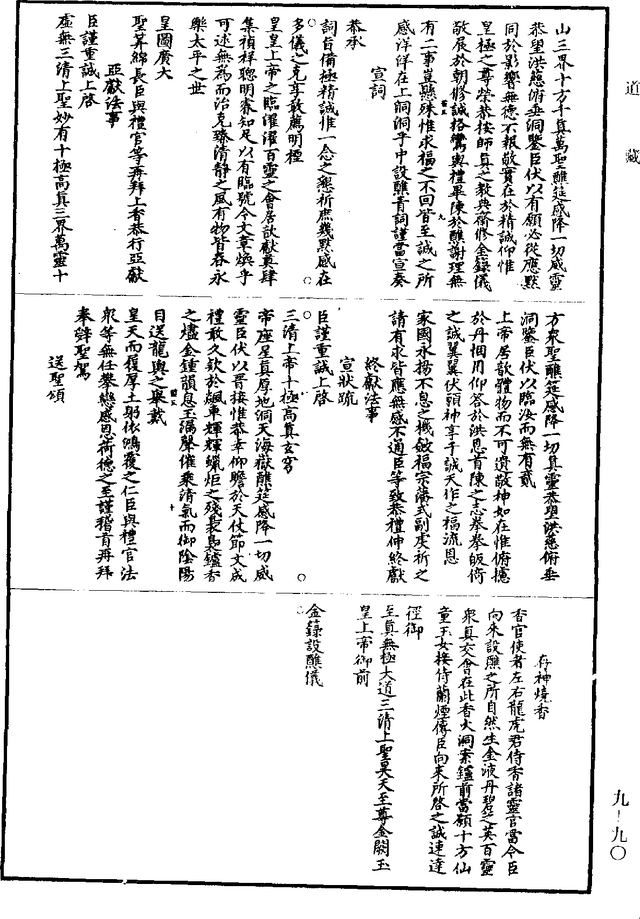 道藏
山三界十方千真萬聖醮筵感降一切威靈
恭望洪慈俯垂洞鑒臣伏以有願必從應黙
同於影響無德不報敬實在於精誠仰惟
皇極之尊榮恭按師真之教典齋修金籙儀
敬展於朝修誠格鸞輿禮畢陳於醮謝理無
有二事豈懸殊惟求福之不回皆至誠之所
感洋洋在上洞洞乎中設醮青詞謹當宣奏
宣詞
恭承
詞旨備極精誠惟一念之懇祈庶幾黙感在
多儀之克享敢薦明禋
皇皇上帝之臨濯濯百靈之會居歆獻奠肆
集禎祥聰明睿知足以有臨號令文章煥乎
可述無為而治克臻清静之風有物皆春永
樂太平之世
皇圖廣大
聖筭綿長臣與禮官等再拜上香恭行亞獻
亞獻法事
臣謹重誠上啓
虛無三清上聖妙有十極高真三界萬靈十
方衆聖醮筵感降一切真靈恭望洪慈俯垂
洞鑒臣伏以臨汝而無有貳
上帝居歆體物而不可遺敬神如在惟俯攄
於丹悃用仰答於洪恩首陳之志拳拳皈倚
之誠翼翼伏願神享千誠天作之福流恩
家國永揚不息之機斂福宗藩式副虔祈之
請有求皆應無感不通臣等致恭禮伸終獻
終獻法事
宣狀疏
臣謹重誠上啓
三清上帝十極高真玄穹
帝座星真厚地洞天海嶽醮筵感降一切威
靈臣伏以晋接惟恭幸仰瞻於天仗節文成
禮敢久欽於飇車輝輝蠟炬之殘裊裊鑪香
之燼金鍾韻息玉磬聲催乘清氣而御陰陽
目送龍輿之舉戴
皇天而履厚土躬依鴻覆之仁臣與禮官法
衆等無任攀戀感恩荷德之至謹稽首再拜
奉辭聖駕
送聖頌
存神燒香
香官使者左右龍虎君侍香諸靈官當令臣
向來設醮之所自然生金液丹碧芝英百靈
衆真交會在此香火洞案鑪前當願十方仙
童玉女接侍蘭煙傳臣向來所啓之誠速達
徑御
至真無極大道三清上聖昊天至尊金闕玉
皇上帝御前
金籙設醮儀
九－九〇